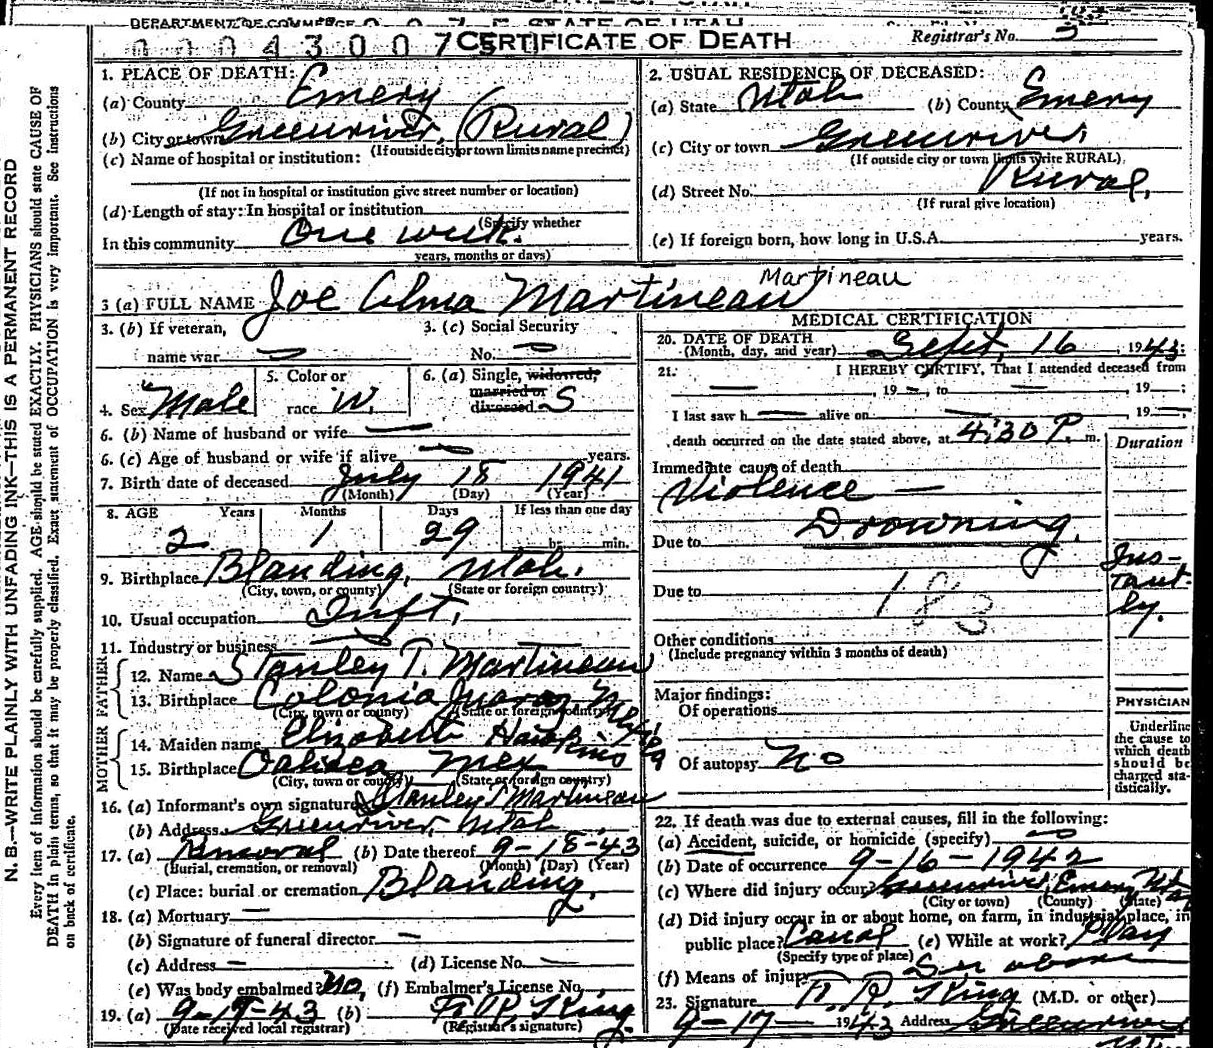 DEPARTMENT OF COMMERCE STATE OF UTAH
0004300755 CERTIFICATE OF DEATH Registrar's No. 3
1. PLACE OF DEATH:
(a) County Emery
(b) City or town Greenriver, (Rural)
(If outside city or town limits name precinct)
(c) Name of hospital or institution:
(If not in hospital or institution give street number or location)
(d) Length of stay: In hospital or institution
(Specify whether
In this community One week.
years, months or days)
2. USUAL RESIDENCE OF DECEASED:
(a) State Utah (b) County Emery
(c) City or town Greenriver
(If outside city or town limits write RURAL)
(d) Street No. Rural,
(If rural give location)
(e) If foreign born, how long in U.S.A. years.
Martineau
3 (a) FULL NAME Joe Alma Martineau
3. (b) If veteran, 3. (c) Social Security
name war — No. —
4. Sex Male 5. Color or race W. 6. (a) Single, widowed, married or divorced S
6. (b) Name of husband or wife —
6. (c) Age of husband or wife if alive — years.
7. Birth date of deceased July 18 1941
(Month) (Day) (Year)
8. AGE Years Months Days If less than one day
2 1 29 hr. min.
9. Birthplace Blanding, Utah.
(City, town, or county) (State or foreign country)
10. Usual occupation Inft.
11. Industry or business —
FATHER
12. Name Stanley T. Martineau
13. Birthplace Colonia Juarez Mexico
(City, town or county) (State or foreign country)
MOTHER
14. Maiden name Elizabeth Hawkins
15. Birthplace Mex
(City, town or county) (State or foreign country)
16. (a) Informant's own signature Stanley T Martineau
(b) Address Greenriver, Utah
17. (a) Removal (b) Date thereof 9-18-43
(Burial, cremation, or removal) (Month) (Day) (Year)
(c) Place: burial or cremation Blanding.
18. (a) Mortuary —
(b) Signature of funeral director —
(c) Address — (d) License No. —
(e) Was body embalmed? No, (f) Embalmer's License No.
19. (a) 9-17-43 (b) F. R. King.
(Date received local registrar) (Registrar's signature)
MEDICAL CERTIFICATION
20. DATE OF DEATH
(Month, day, and year) Sept. 16, 1943:
21. I HEREBY CERTIFY, That I attended deceased from
—, 19—, to —, 19—;
I last saw h— alive on —, 19—;
death occurred on the date stated above, at 4:30 P. m.
Duration
Immediate cause of death
Violence —
Due to Drowning.
Instantly.
Due to
183
Other conditions
(Include pregnancy within 3 months of death)
Major findings:
Of operations
Of autopsy No
PHYSICIAN
Underline
the cause to
which death
should be
charged sta-
tistically.
22. If death was due to external causes, fill in the following:
(a) Accident, suicide, or homicide (specify) —
(b) Date of occurrence 9-16-1942
(c) Where did injury occur? Greenriver, Emery, Utah
(City or town) (County) (State)
(d) Did injury occur in or about home, on farm, in industrial place, in
public place? Canal (e) While at work? Play
(Specify type of place)
(f) Means of injury See above
23. Signature F. R. King (M.D. or other)
9-17-1943 Address Greenriver
N.B.—WRITE PLAINLY WITH UNFADING INK—THIS IS A PERMANENT RECORD
Every item of information should be carefully supplied. AGE should be stated EXACTLY. PHYSICIANS should state CAUSE OF
DEATH in plain terms, so that it may be properly classified. Exact statement of OCCUPATION is very important. See instructions
on back of certificate.